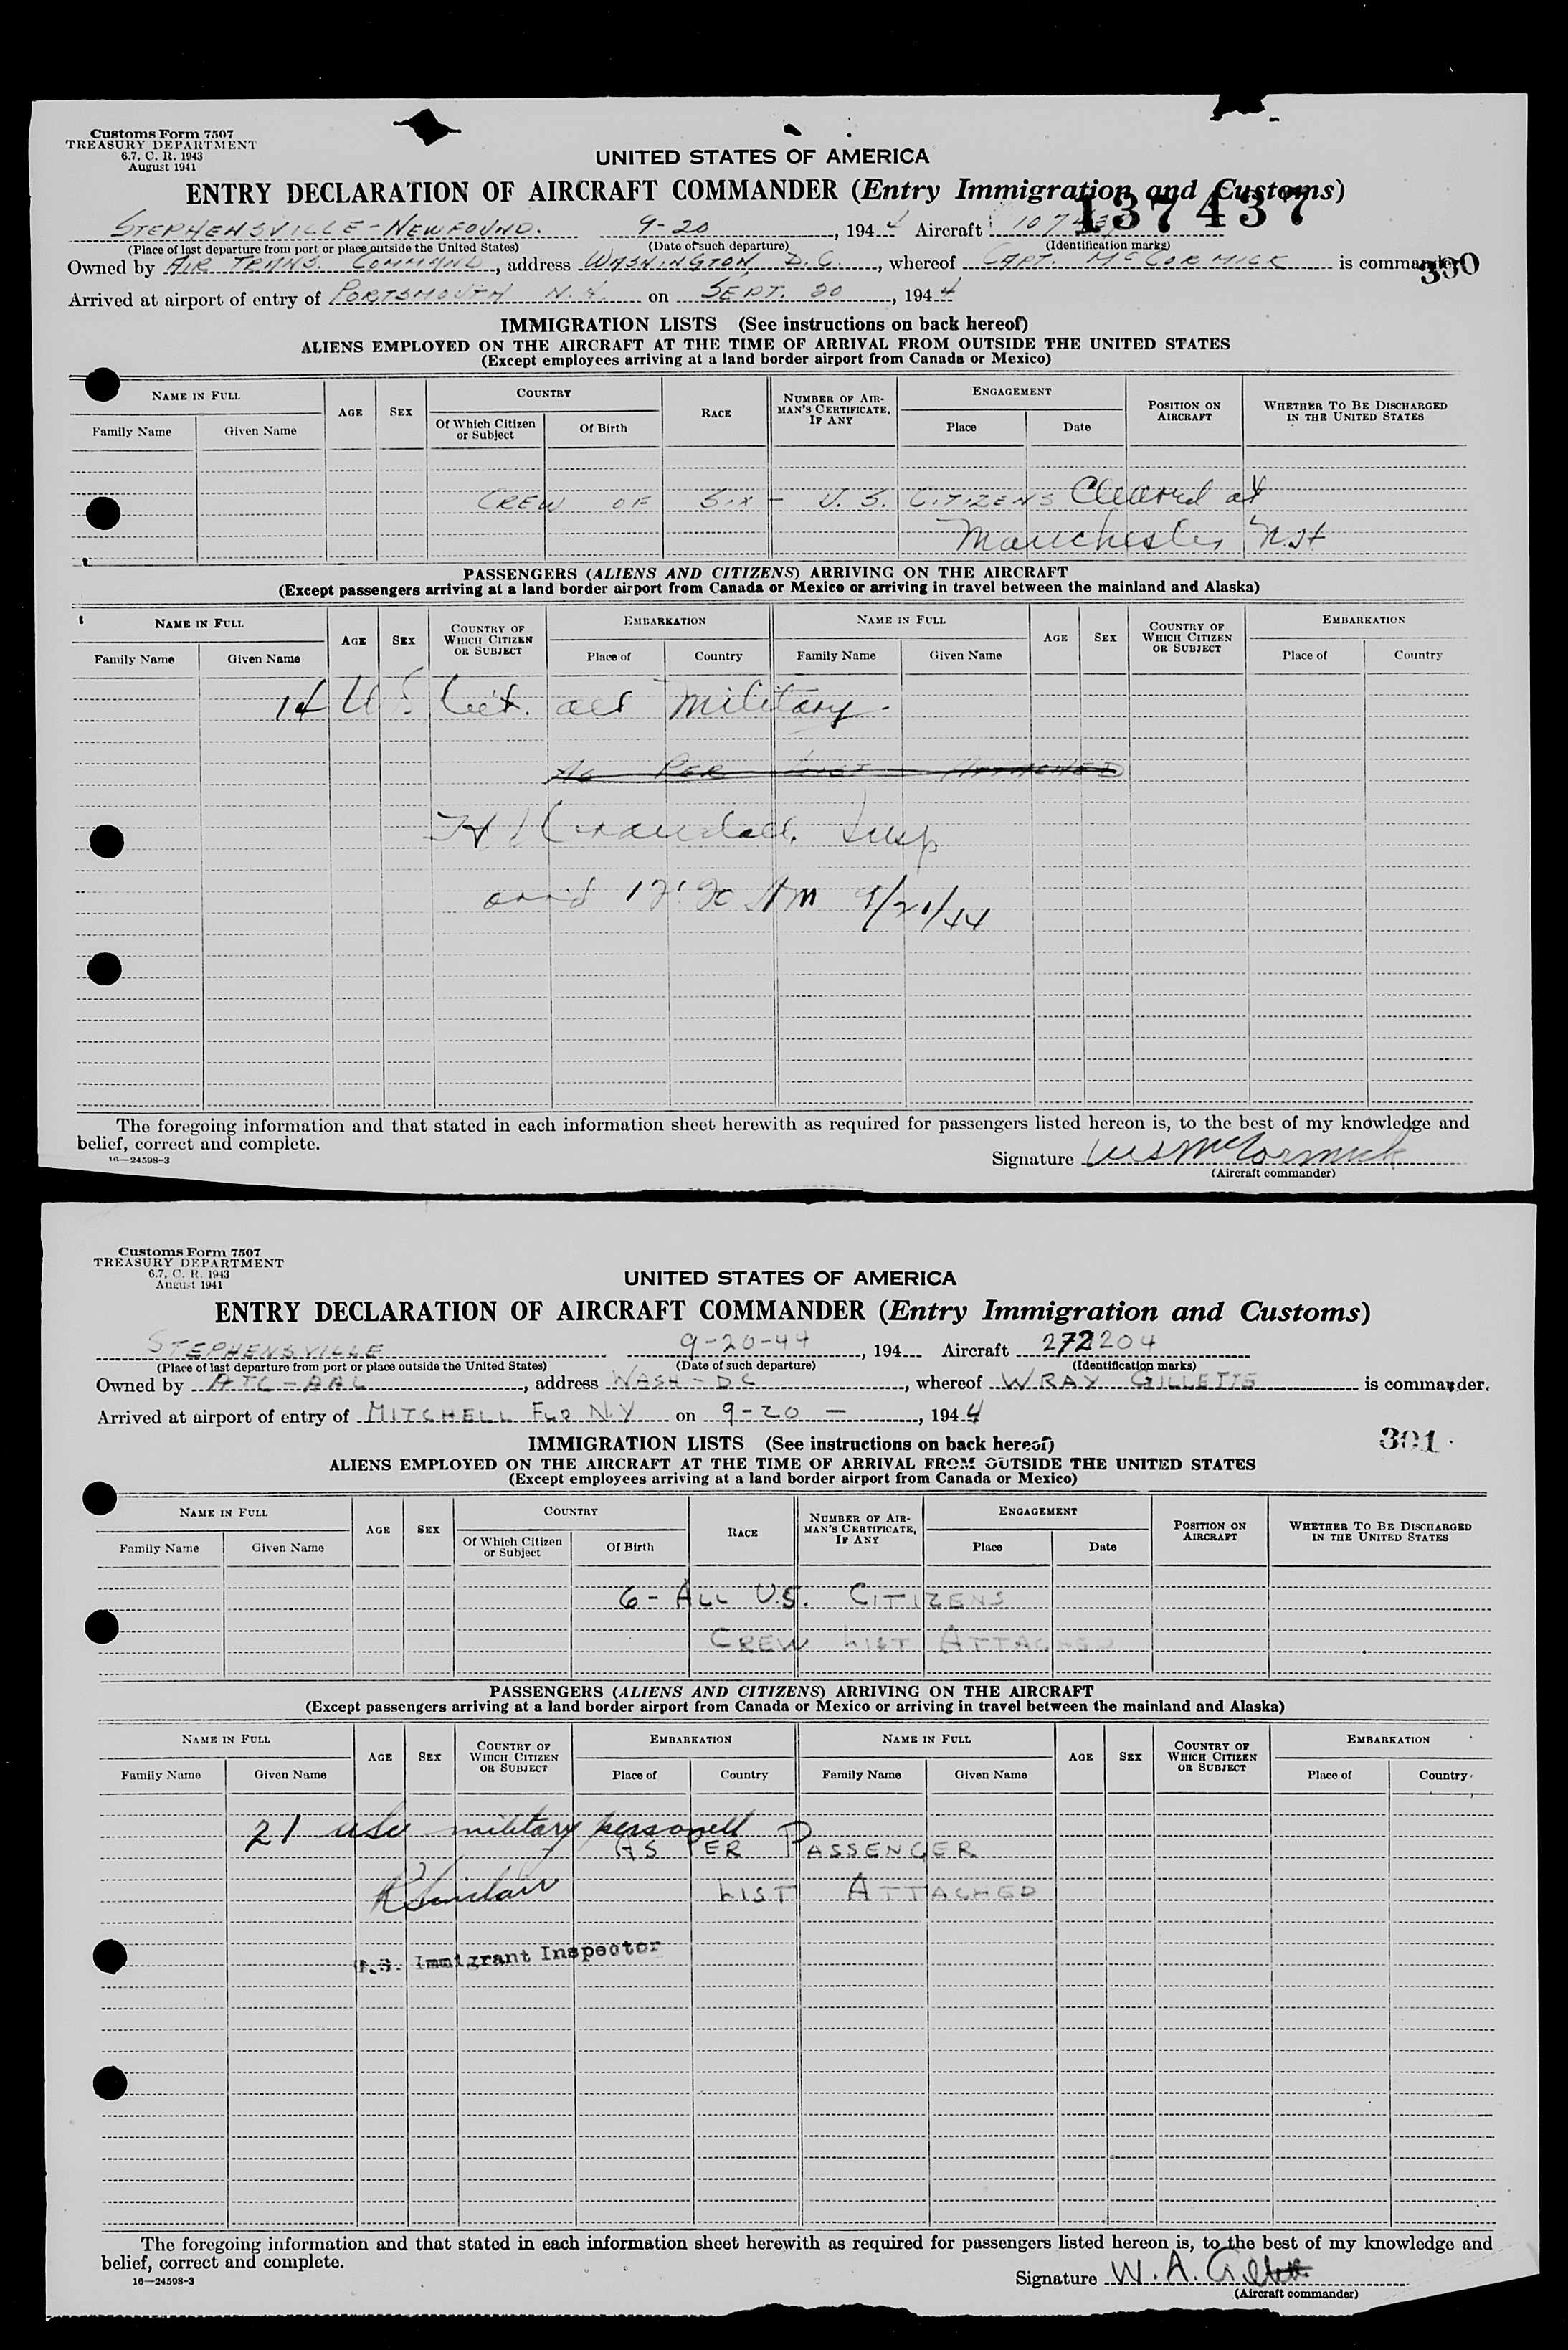 Customs Form 7507
TREASURY DEPARTMENT
6.7, C. R. 1943
August 1941
UNITED STATES OF AMERICA
ENTRY DECLARATION OF AIRCRAFT COMMANDER (Entry Immigration and Customs)
137437
STEPHENSVILLE - NEWFOUND. 9-20, 1944 Aircraft
(Place of last departure from port or place outside the United States) (Date of such departure) (Identification marks)
Owned by AIR TRANS. COMMAND, address WASHINGTON, D.C., whereof CAPT. McCORMICK is commander.
300
Arrived at airport of entry of PORTSMOUTH N.H. on SEPT. 20, 1944
IMMIGRATION LISTS (See instructions on back hereof)
ALIENS EMPLOYED ON THE AIRCRAFT AT THE TIME OF ARRIVAL FROM OUTSIDE THE UNITED STATES
(Except employees arriving at a land border airport from Canada or Mexico)
NAME IN FULL AGE SEX COUNTRY RACE NUMBER OF AIRMAN'S CERTIFICATE, IF ANY ENGAGEMENT POSITION ON AIRCRAFT WHETHER TO BE DISCHARGED IN THE UNITED STATES
Family Name Given Name Of Which Citizen or Subject Of Birth Place Date
CREW OF SIX - U.S. CITIZENS Cleared at
Manchester N.H.
PASSENGERS (ALIENS AND CITIZENS) ARRIVING ON THE AIRCRAFT
(Except passengers arriving at a land border airport from Canada or Mexico or arriving in travel between the mainland and Alaska)
NAME IN FULL AGE SEX COUNTRY OF WHICH CITIZEN OR SUBJECT EMBARKATION NAME IN FULL AGE SEX COUNTRY OF WHICH CITIZEN OR SUBJECT EMBARKATION
Family Name Given Name Place of Country Family Name Given Name Place of Country
14 U S Cit. all military.
AS PER LIST ATTACHED
Crandall, Insp
9/21/44
The foregoing information and that stated in each information sheet herewith as required for passengers listed hereon is, to the best of my knowledge and
belief, correct and complete.
16—24598-3
Signature McCormick
(Aircraft commander)
Customs Form 7507
TREASURY DEPARTMENT
6.7, C. R. 1943
August 1941
UNITED STATES OF AMERICA
ENTRY DECLARATION OF AIRCRAFT COMMANDER (Entry Immigration and Customs)
STEPHENSVILLE 9-20-44, 194 Aircraft 272204
(Place of last departure from port or place outside the United States) (Date of such departure) (Identification marks)
Owned by ATC-AAL, address WASH-DC, whereof WRAY GILLETTE is commander.
Arrived at airport of entry of MITCHELL FLD N.Y on 9-20 -, 1944
301
IMMIGRATION LISTS (See instructions on back hereof)
ALIENS EMPLOYED ON THE AIRCRAFT AT THE TIME OF ARRIVAL FROM OUTSIDE THE UNITED STATES
(Except employees arriving at a land border airport from Canada or Mexico)
NAME IN FULL AGE SEX COUNTRY RACE NUMBER OF AIRMAN'S CERTIFICATE, IF ANY ENGAGEMENT POSITION ON AIRCRAFT WHETHER TO BE DISCHARGED IN THE UNITED STATES
Family Name Given Name Of Which Citizen or Subject Of Birth Place Date
6 - ALL U.S. CITIZENS
CREW LIST ATTACHED
PASSENGERS (ALIENS AND CITIZENS) ARRIVING ON THE AIRCRAFT
(Except passengers arriving at a land border airport from Canada or Mexico or arriving in travel between the mainland and Alaska)
NAME IN FULL AGE SEX COUNTRY OF WHICH CITIZEN OR SUBJECT EMBARKATION NAME IN FULL AGE SEX COUNTRY OF WHICH CITIZEN OR SUBJECT EMBARKATION
Family Name Given Name Place of Country Family Name Given Name Place of Country
21 military personell
AS PER PASSENGER
R Sinclair LIST ATTACHED
U.S. Immigrant Inspector
The foregoing information and that stated in each information sheet herewith as required for passengers listed hereon is, to the best of my knowledge and
belief, correct and complete.
16—24598-3
Signature W. A. Gillette
(Aircraft commander)